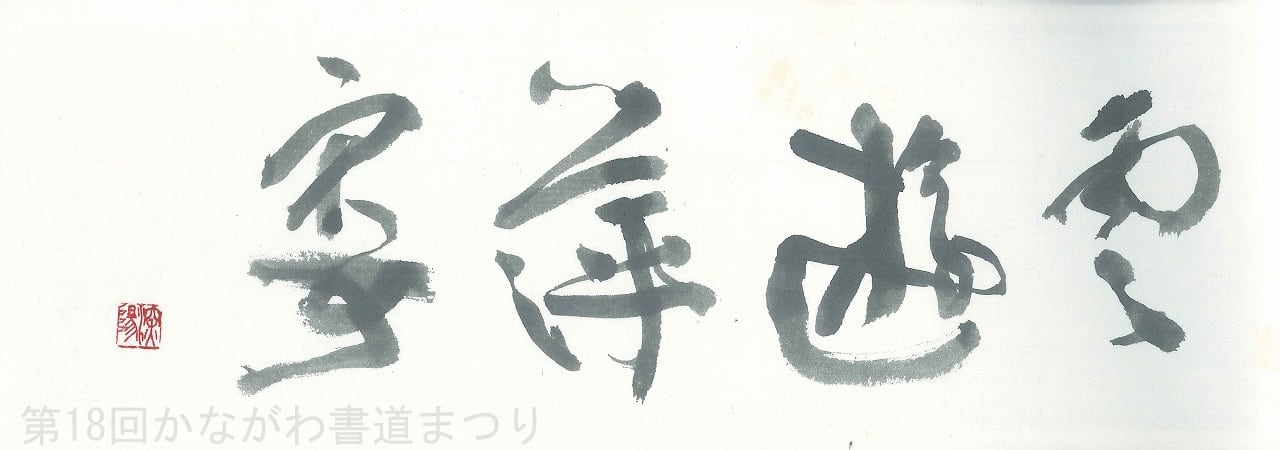 雲遊萍寄
第18回かながわ書道まつり